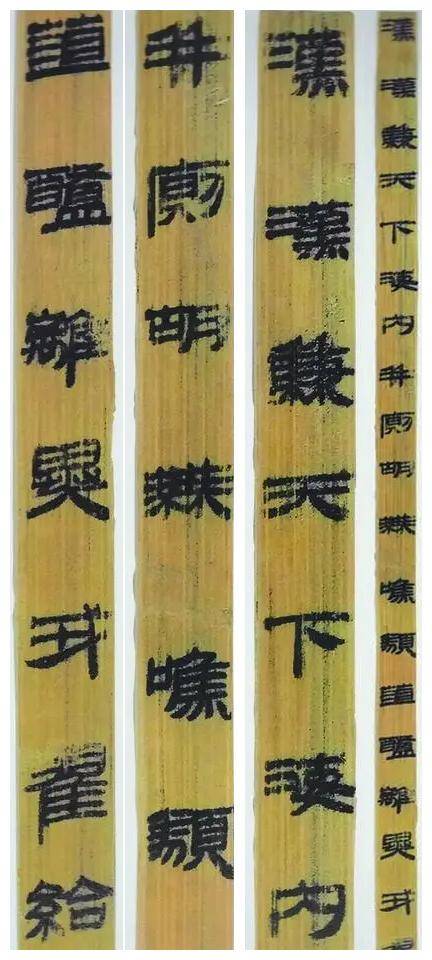 漢漢兼天下海內并廁胡無噍類菹醢離異戎翟
漢漢兼天下海內
并廁胡無噍類
菹醢離異戎翟給